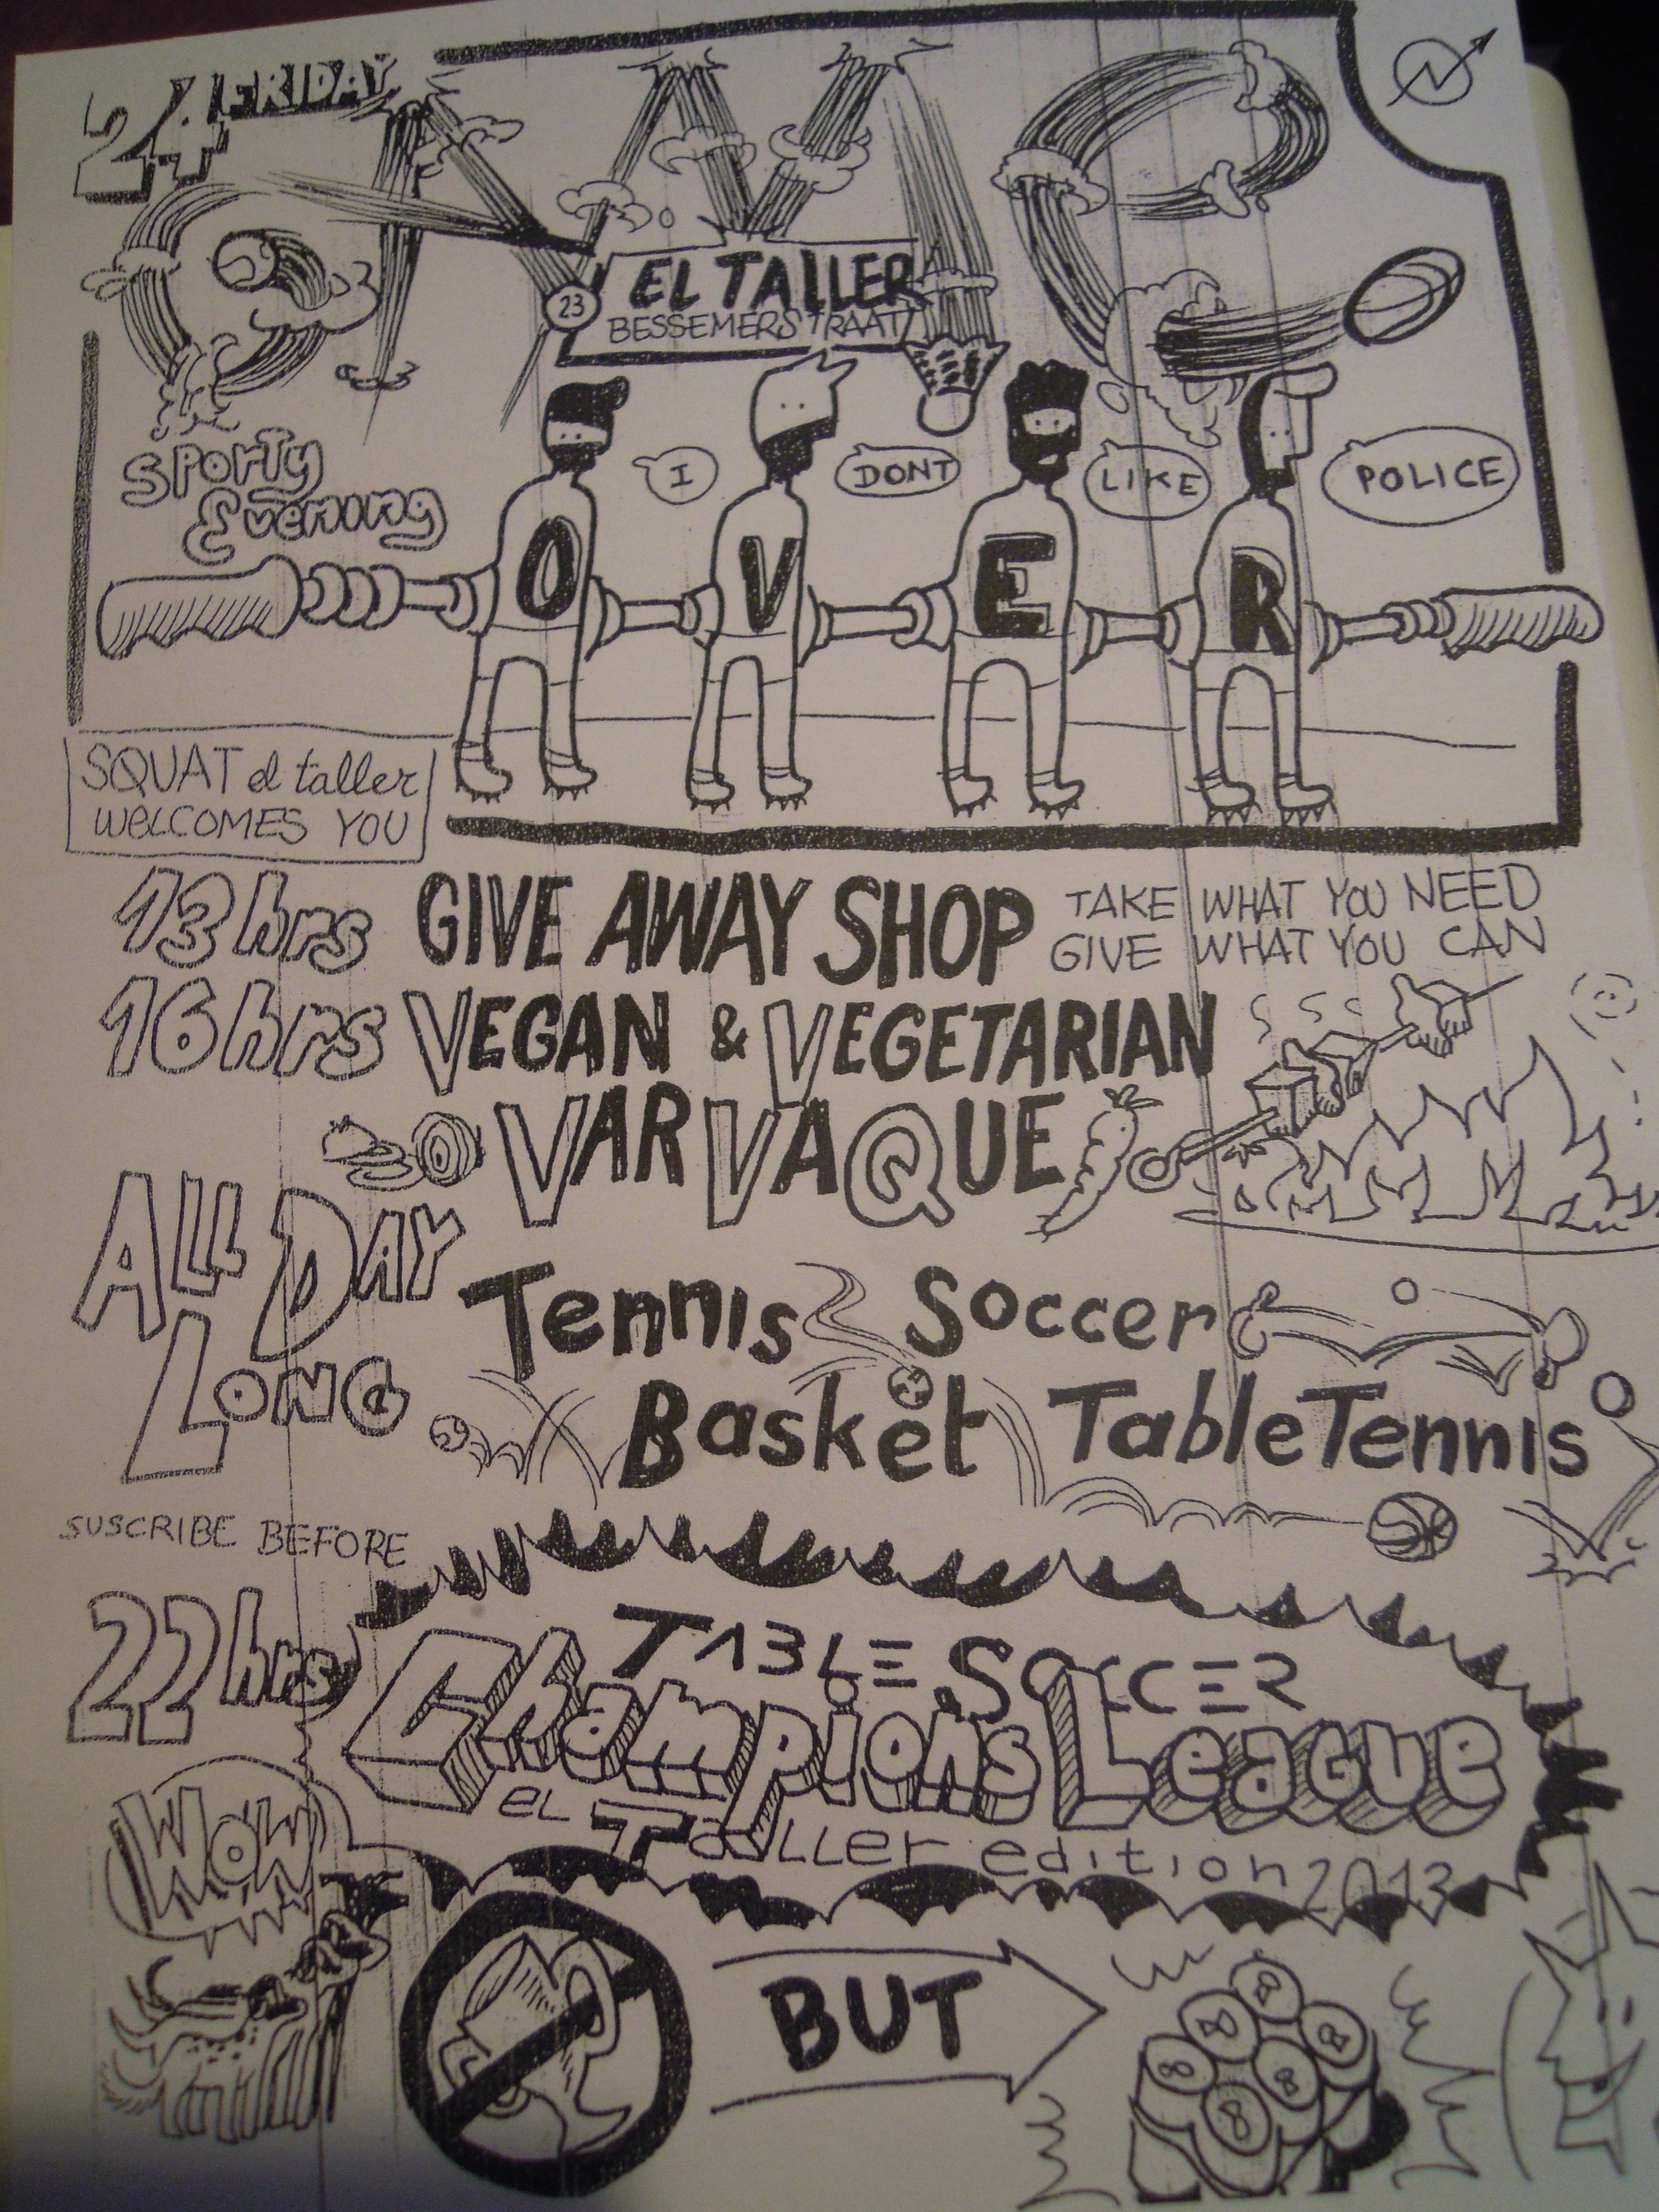 24 FRIDAY
GAME
23 EL TALLER
BESSEMERSTRAAT
I DONT LIKE POLICE
SPorTy
Evening
O V E R
SQUAT el taller
WELCOMES YOU
13hrs GIVE AWAY SHOP TAKE WHAT YOU NEED
GIVE WHAT YOU CAN
16hrs VEGAN & VEGETARIAN
VARVAQUE
ALL DAY
LONG
Tennis Soccer
Basket TableTennis
SUSCRIBE BEFORE
22hrs
TABLE SOCCER
Champions LeaGue
eL Taller edition 2013
WOW
BUT